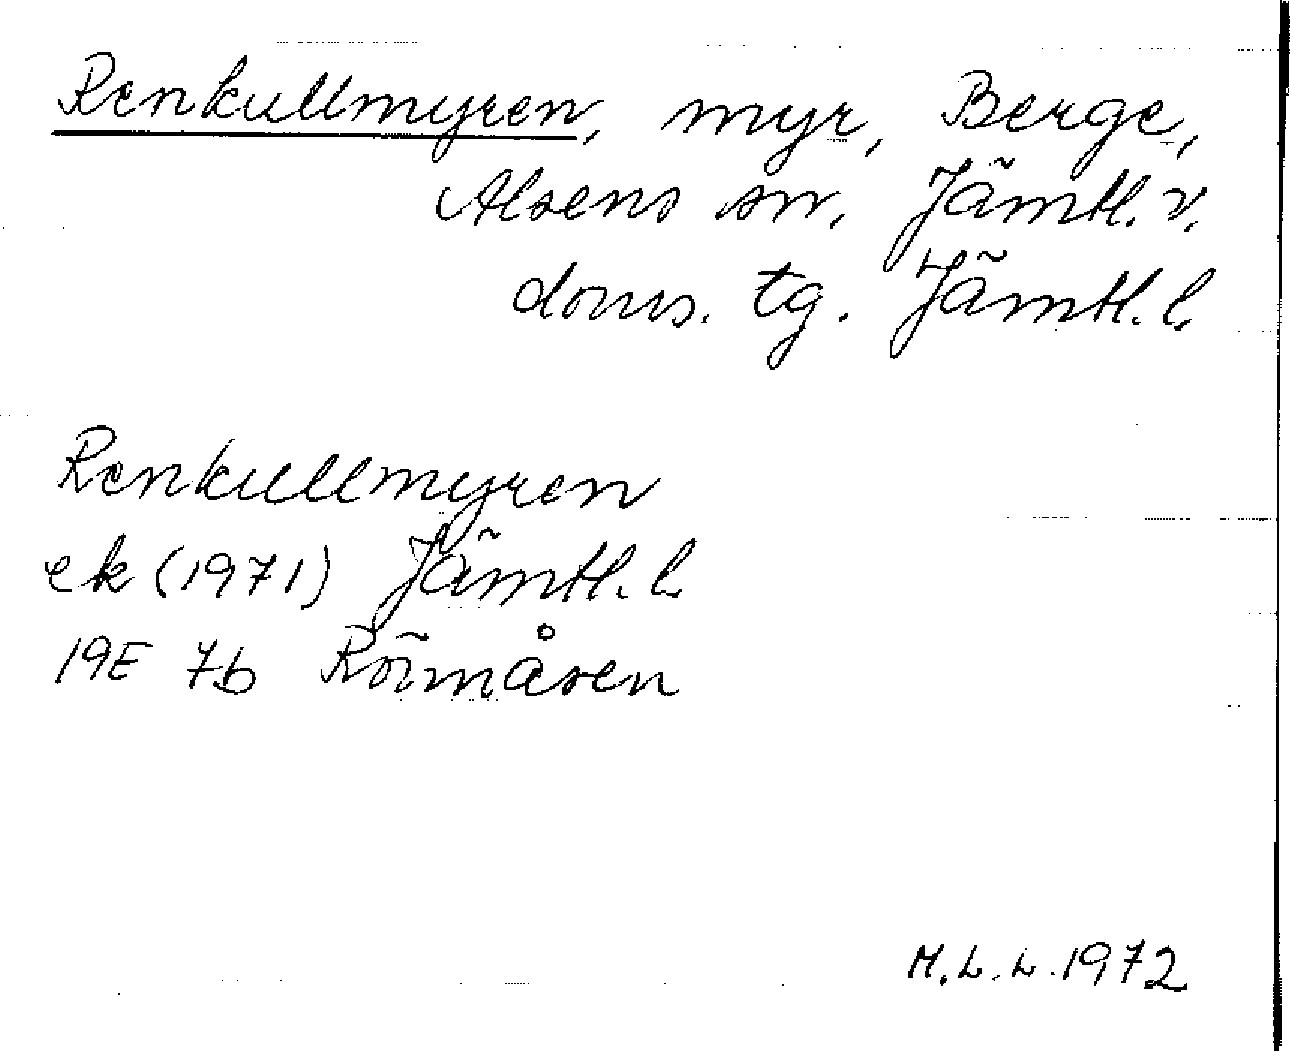 Renkullmyren, myr, Berge,
Alsens sn, Jämtl. v.
doms. tg. Jämtl. l.
Renkullmyren
ek (1971) Jämtl. l.
19E 7b Römåsen
M. L. L. 1972